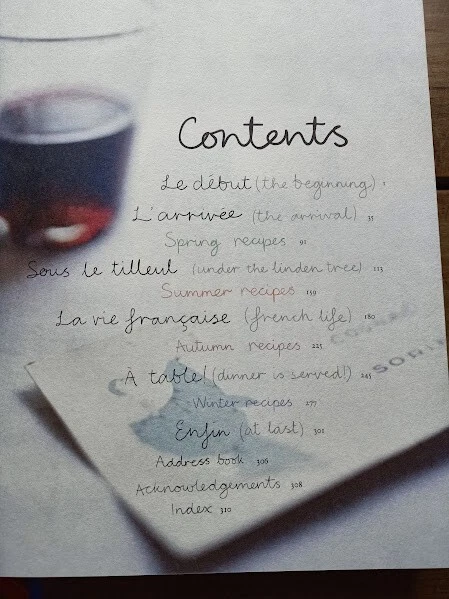 Contents
Le début (the beginning) 1
L'arrivée (the arrival) 35
Spring recipes 92
Sous le tilleul (under the linden tree) 123
Summer recipes 159
La vie française (french life) 180
Autumn recipes 225
À table! (dinner is served!) 245
Winter recipes 277
Enfin (at last) 301
Address book 306
Acknowledgements 308
Index 310